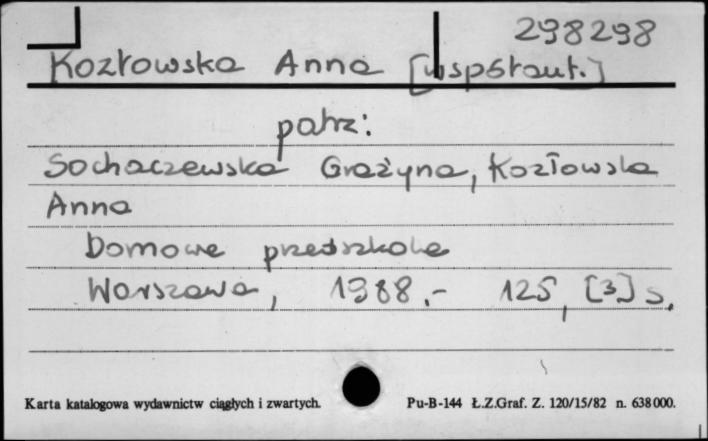 298298
Kozłowska Anna [współaut.]
patrz:
Sochaczewska Grażyna, Kozłowska
Anna
Domowe przedszkole
Warszawa, 1988.- 125, [3] s.
Karta katalogowa wydawnictw ciągłych i zwartych. Pu-B-144 Ł.Z.Graf. Z. 120/15/82 n. 638000.